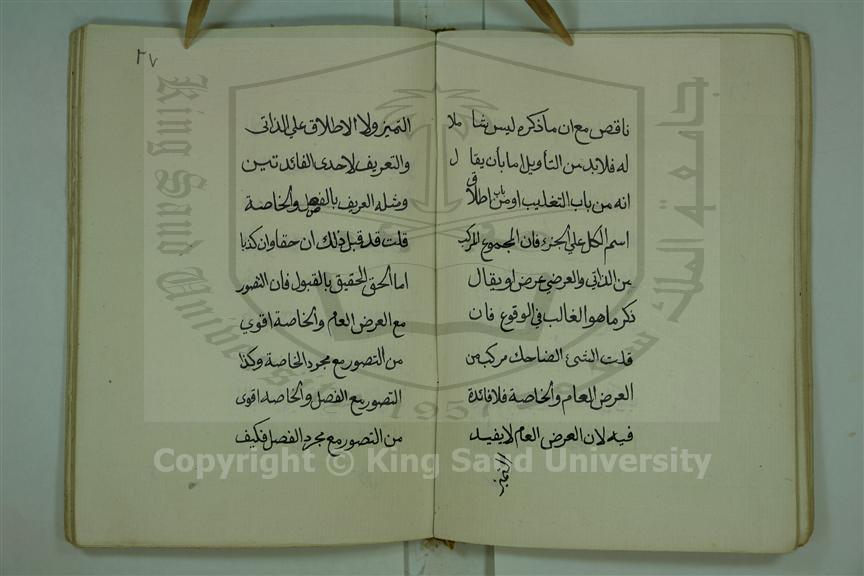 ناقص مع ان ما ذكره ليس شا ملا
له فلابد من التأويل اما بأن يقا ل
انه من باب التغليب او من باب اطلاق
اسم الكل علي الجزء فان المجموع المركب
من الذاتي والعرضي عرض او يقال
ذكر ما هو الغالب في الوقوع فان
قلت الشئ الضاحك مركب من
العرض العام والخاصة فلا فائدة
فيه لان العرض العام لا يفيد
التميز
٣٧
التميز ولا الاطلاق علي الذاتى
والتعريف لاحدى الفائدتين
ومثله العريف بالفصل والخاصة
قلت قد قبل ذلك ان حقا وان كذبا
اما الحق الحقيق بالقبول فان التصور
مع العرض العام والخاصة اقوي
من التصور مع مجرد الخاصة وكذا
التصور مع الفصل والخاصة اقوى
من التصور مع مجرد الفصل فكيف
جامعة الملك سعود
King Saud University
1957
Copyright © King Saud University